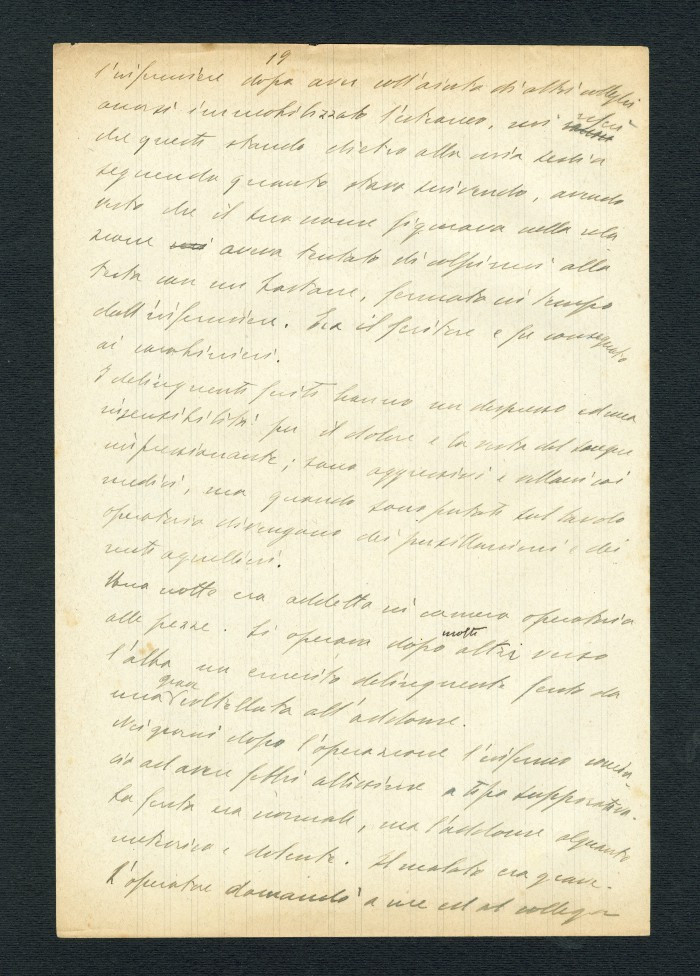 19
l'infermiere dopo aver coll'aiuto di altri colleghi
accorsi immobilizzato l'estraneo, mi riferì
che questi stando dietro alla mia sedia
seguendo quanto stavo scrivendo, avendo
visto che il suo nome figurava nella rela
zione aveva tentato di colpirmi alla
testa con un bastone, fermato in tempo
dall'infermiere. Era il feritore e fu consegnato
ai carabinieri.
I delinquenti feriti hanno un disprezzo ed una
insensibilità per il dolore e la vista del sangue
impressionante; sono aggressivi e villani coi
medici, ma quando sono portati sul tavolo
operatorio divengono dei pusillanimi e dei
miti agnellini.
Una notte ero addetto in camera operatoria
alle pezze. Si operava dopo molti altri verso
l'alba un emerito delinquente ferito da
una grave coltellata all'addome.
Nei giorni dopo l'operazione l'infermo comin
ciò ad avere febbri altissime a tipo suppurativo.
La ferita era normale, ma l'addome alquanto
meteorico e dolente. Il malato era grave.
L'operatore domandò a me ed al collega